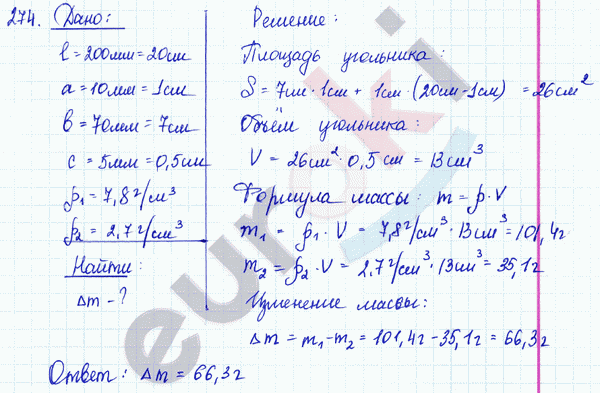 274. Дано:
l = 200мм = 20см
a = 10мм = 1см
b = 70мм = 7см
c = 5мм = 0,5см
ρ₁ = 7,8 г/см³
ρ₂ = 2,7 г/см³
Найти:
Δm - ?
Решение:
Площадь угольника:
S = 7см · 1см + 1см · (20см - 1см) = 26см²
Объём угольника:
V = 26см² · 0,5 см = 13см³
Формула массы: m = ρ · V
m₁ = ρ₁ · V = 7,8 г/см³ · 13см³ = 101,4г
m₂ = ρ₂ · V = 2,7 г/см³ · 13см³ = 35,1г
Изменение массы:
Δm = m₁ - m₂ = 101,4г - 35,1г = 66,3г
Ответ: Δm = 66,3г
euroki